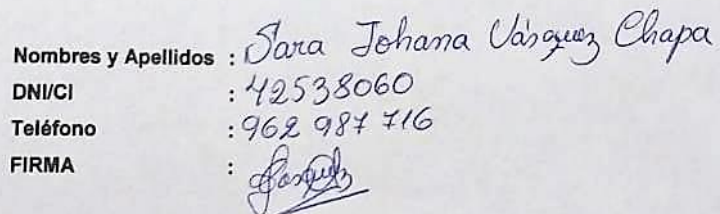 Nombres y Apellidos : Sara Johana Vásquez Chapa
DNI/CI : 42538060
Teléfono : 962 987 716
FIRMA :